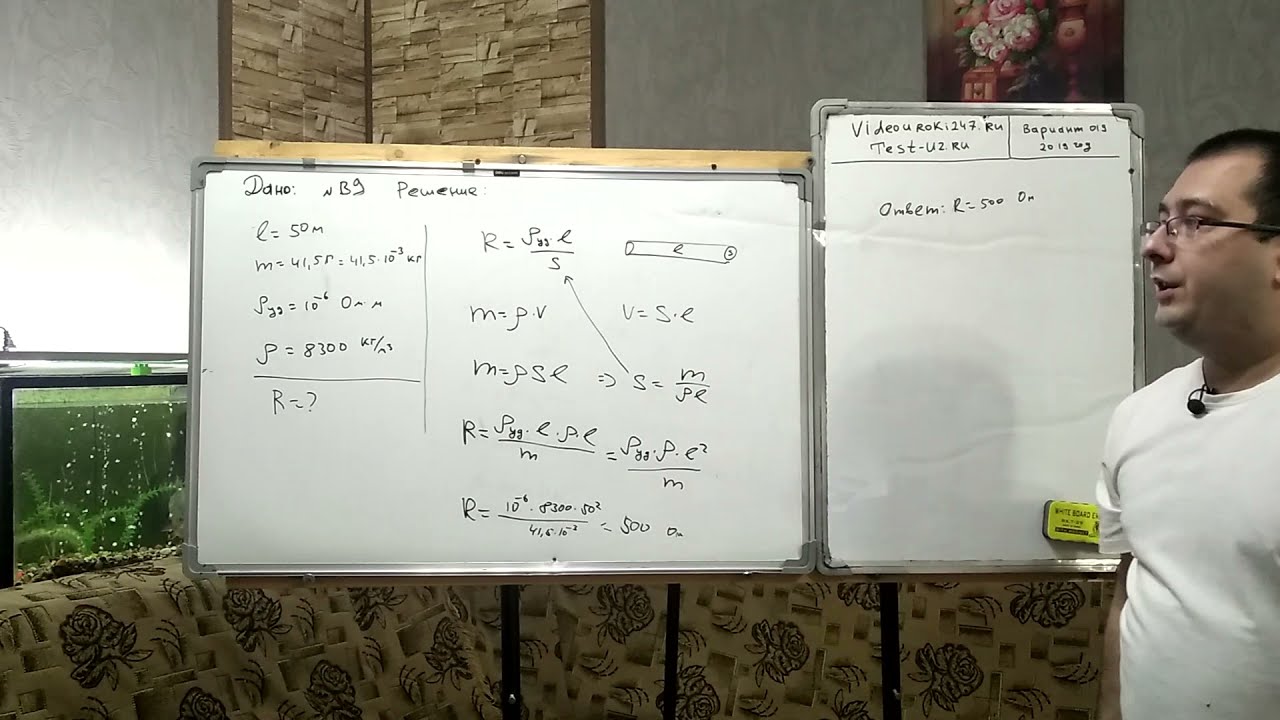 Дано: №В9 Решение:
l = 50м
m = 41,5г = 41,5·10⁻³ кг
ρуд = 10⁻⁶ Ом·м
ρ = 8300 кг/м³
R = ?
R = ρуд·l/S
l S
m = ρ·V V = S·l
m = ρSl ⇒ S = m/ρl
R = ρуд·l·ρ·l/m = ρуд·ρ·l²/m
R = 10⁻⁶·8300·50²/41,5·10⁻³ = 500 Ом
Videouroki247.ru
Test-uz.ru
Вариант 019
2019 год
Ответ: R = 500 Ом
WHITE BOARD